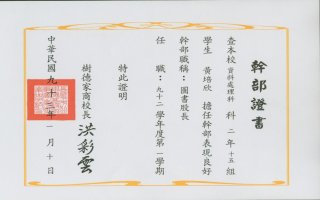 幹部證書
查本校資料處理科 科 二 年 十五 組
學生 黃培欣 擔任幹部表現良好
幹部職稱：圖書股長
任職：九十二學年度第一學期
特此證明
樹德家商校長 洪彩雲
中華民國九十三年一月十日